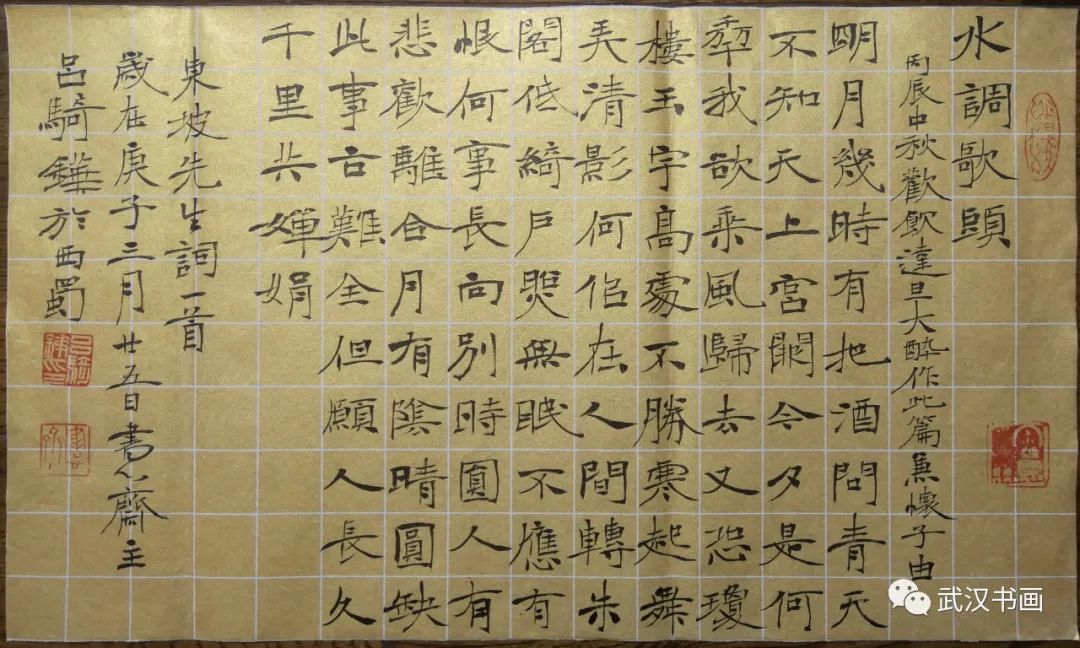 水調歌頭
丙辰中秋歡飲達旦大醉作此篇兼懷子由
明月幾時有把酒問青天
不知天上宮闕今夕是何
年我欲乘風歸去又恐瓊
樓玉宇高處不勝寒起舞
弄清影何佀在人間轉朱
閣低綺戶照無眠不應有
恨何事長向別時圓人有
悲歡離合月有陰晴圓缺
此事古難全但願人長久
千里共嬋娟
東坡先生詞一首
歲在庚子三月廿五日書心齋主
呂騎鏵於西蜀
武汉书画